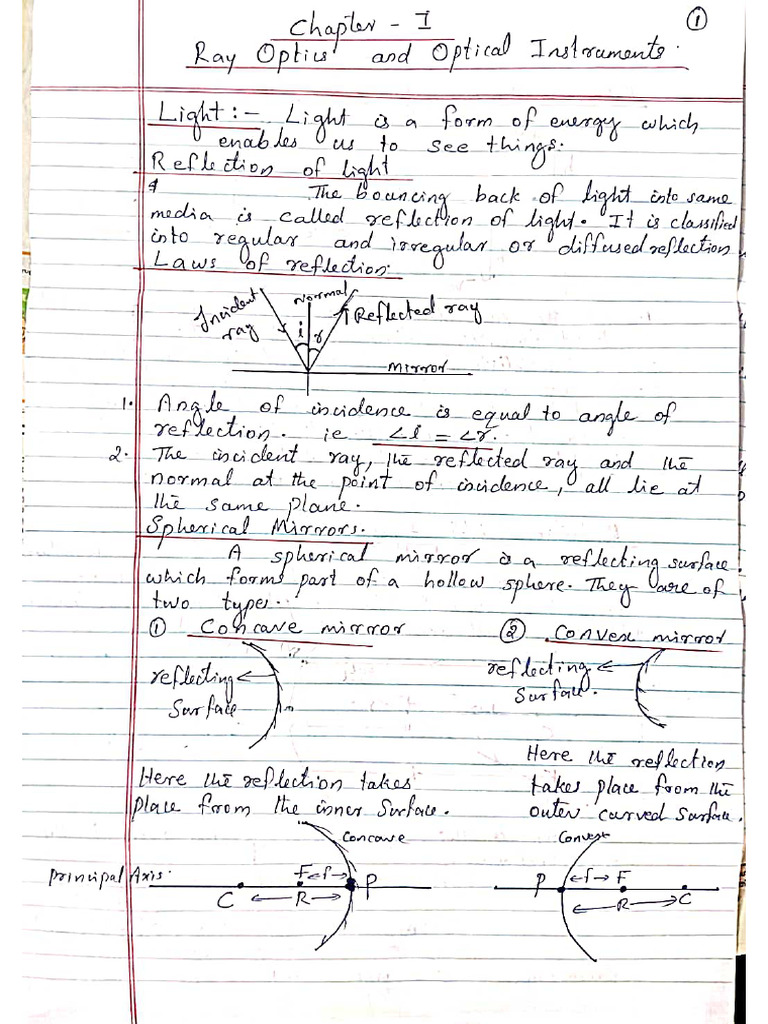 Chapter - I
①
Ray Optics and Optical Instruments.
Light :- Light is a form of energy which
enables us to see things.
Reflection of light
The bouncing back of light into same
media is called reflection of light. It is classified
into regular and irregular or diffused reflection
Laws of reflection.
Incident ray
Normal
Reflected ray
i
r
Mirror
1. Angle of incidence is equal to angle of
reflection. ie ∠i = ∠r.
2. The incident ray, the reflected ray and the
normal at the point of incidence, all lie at
the same plane.
Spherical Mirrors.
A spherical mirror is a reflecting surface
which forms part of a hollow sphere. They are of
two types.
① Concave mirror
② Convex mirror
reflecting
Surface
reflecting
Surface.
Here the reflection takes
place from the inner Surface.
Here the reflection
takes place from the
outer curved surface.
Concave
Convex
Principal Axis.
F
f
P
C
R
P
f
F
R
C